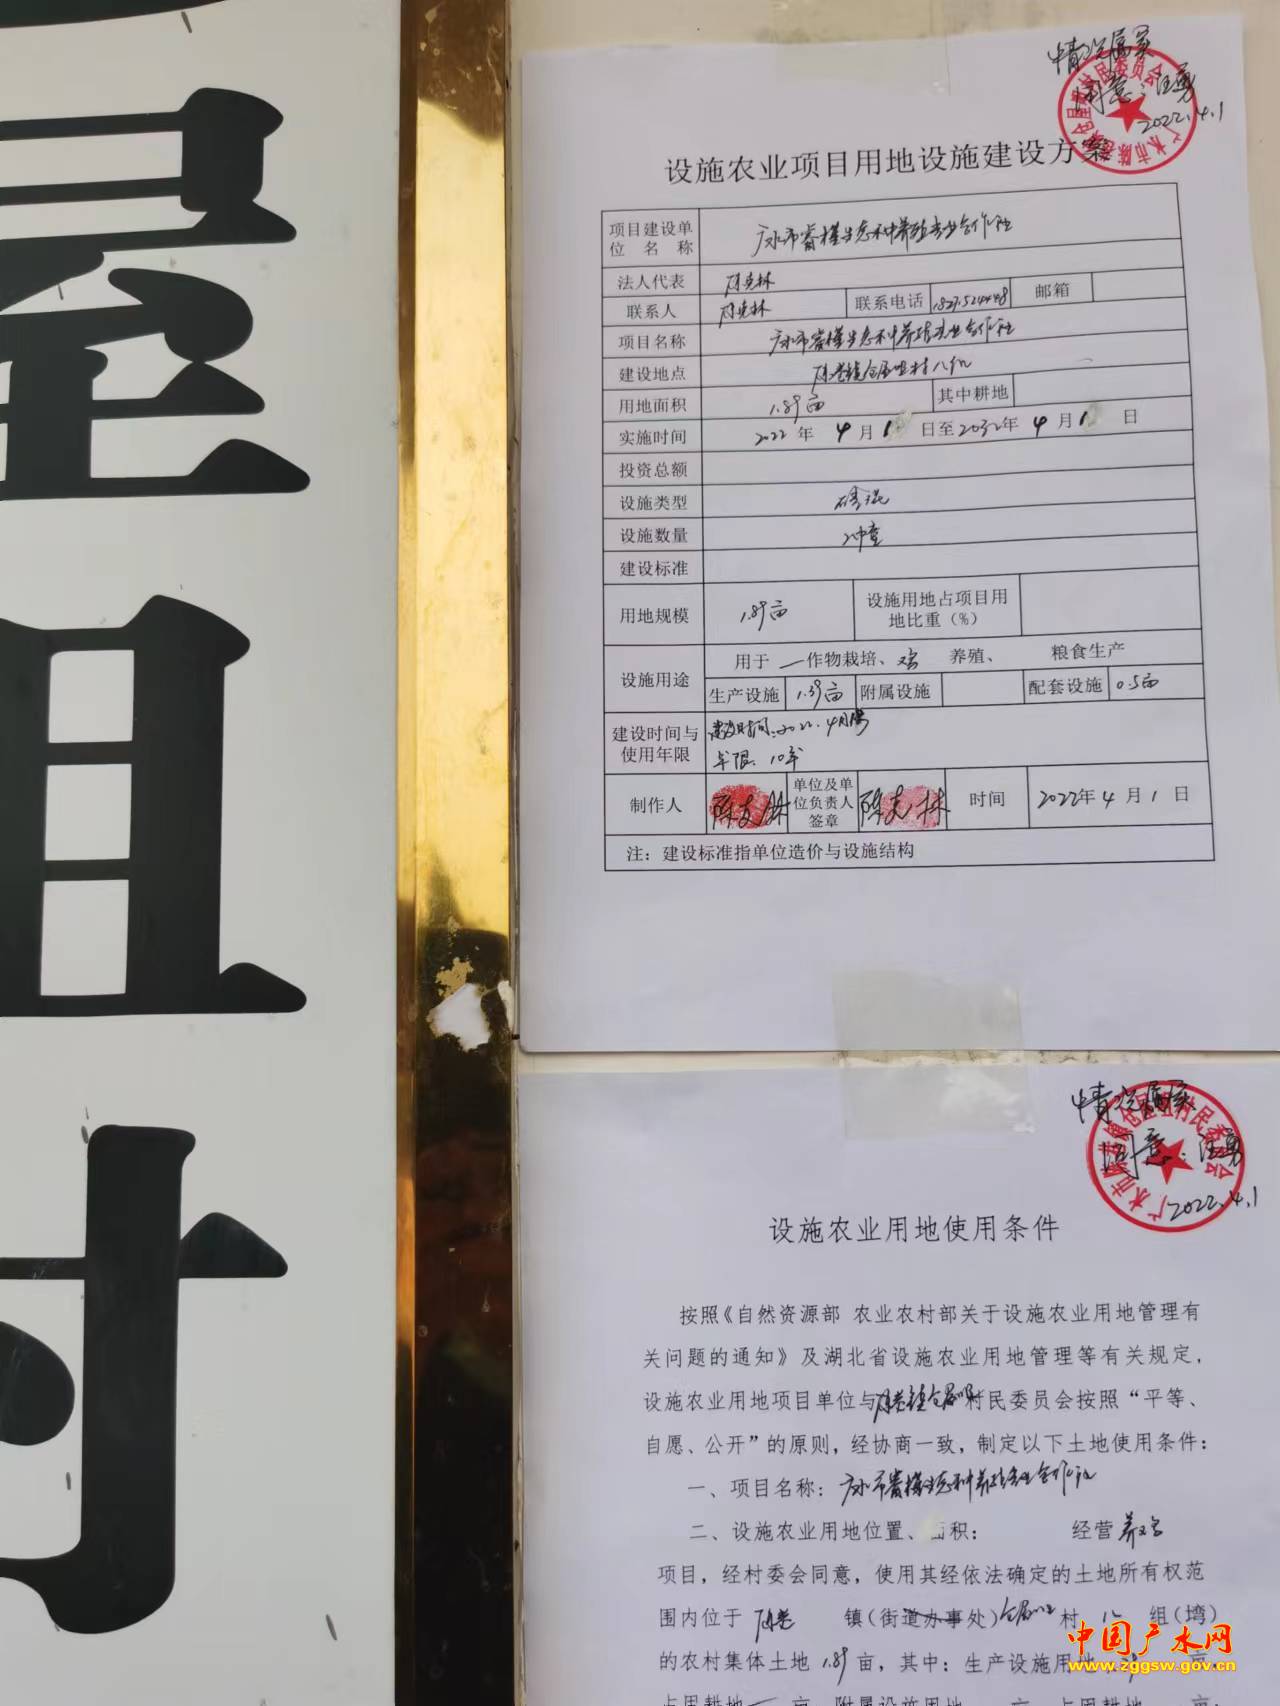 屋
咀
村
情况属实
同意:汪勇
2022.4.1
设施农业项目用地设施建设方案
项目建设单位名称 广水市睿禳生态种养殖专业合作社
法人代表
联系人 联系电话 邮箱
项目名称 广水市睿禳生态种养殖专业合作社
建设地点 陈巷镇仓屋咀村八组
用地面积 1.89亩 其中耕地
实施时间 2022年4月1日至2032年4月1日
投资总额
设施类型 砖混
设施数量
建设标准
用地规模 1.89亩 设施用地占项目用地比重(%)
设施用途 用于 作物栽培、鸡 养殖、 粮食生产
生产设施 1.39亩 附属设施 配套设施 0.5亩
建设时间与使用年限 建设时间:2022.4月
年限:10年
制作人 单位及单位负责人签章 陈克林 时间 2022年4月1日
注:建设标准指单位造价与设施结构
情况属实
同意:汪勇
2022.4.1
设施农业用地使用条件
按照《自然资源部 农业农村部关于设施农业用地管理有
关问题的通知》及湖北省设施农业用地管理等有关规定,
设施农业用地项目单位与陈巷镇仓屋咀村民委员会按照“平等、
自愿、公开”的原则,经协商一致,制定以下土地使用条件:
一、项目名称:广水市睿禳生态种养殖专业合作社
二、设施农业用地位置、面积: 经营养鸡
项目,经村委会同意,使用其经依法确定的土地所有权范
围内位于 陈巷 镇(街道办事处)仓屋咀村 八 组(塆)
的农村集体土地 1.89 亩,其中:生产设施用地
中国广水网
www.zggsw.gov.cn